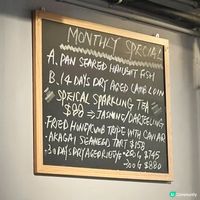 MONTHLY SPECIAL
A. PAN SEARED HALIBUT FISH
B. 14 DAYS DRY AGED LAMB LOIN
SPEICAL SPARKLING TEA
$88 ⇒ JASMINE / DARJEELING
FRIED HONEYCOMB TRIPE WITH CAVIAR
• AKAGAI SEAWEED TART $158
• 30 DAYS DRY AGED RIBEYE - 200G $745
- 300G $880